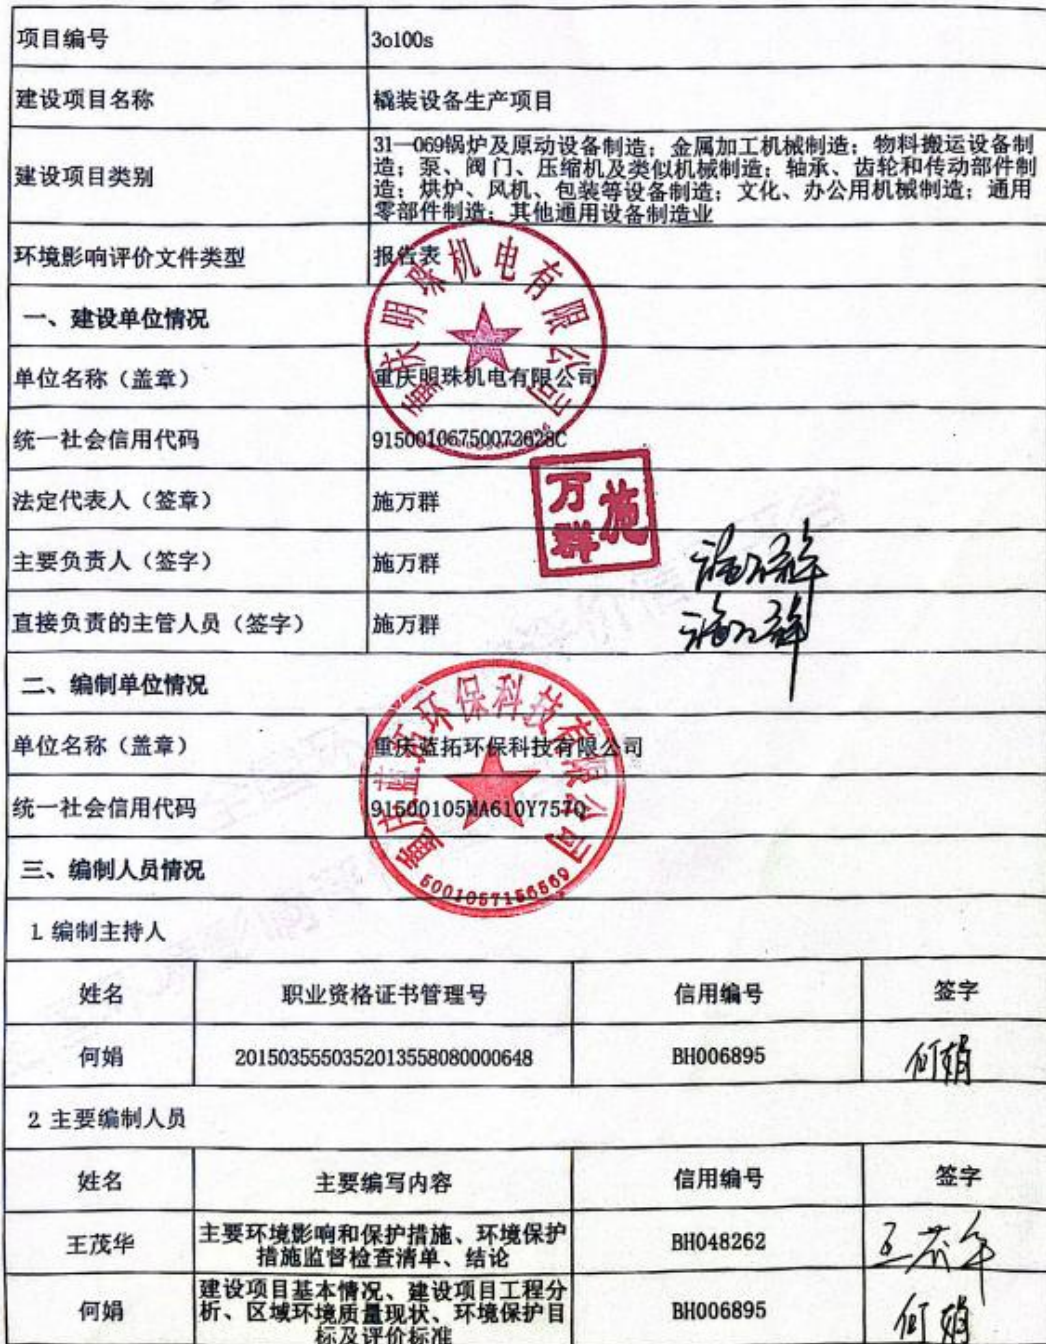 项目编号 3o100s
建设项目名称 橇装设备生产项目
建设项目类别 31—069锅炉及原动设备制造；金属加工机械制造；物料搬运设备制
造；泵、阀门、压缩机及类似机械制造；轴承、齿轮和传动部件制
造；烘炉、风机、包装等设备制造；文化、办公用机械制造；通用
零部件制造；其他通用设备制造业
环境影响评价文件类型 报告表
一、建设单位情况
单位名称（盖章） 重庆明珠机电有限公司
重庆明珠机电有限公司
统一社会信用代码 91500106750073628C
法定代表人（签章） 施万群
施万群
主要负责人（签字） 施万群
施万群
直接负责的主管人员（签字） 施万群
施万群
二、编制单位情况
单位名称（盖章） 重庆蓝拓环保科技有限公司
重庆蓝拓环保科技有限公司
统一社会信用代码 91500105MA610Y757Q
5001057156569
三、编制人员情况
1 编制主持人
姓名 职业资格证书管理号 信用编号 签字
何娟 2015035550352013558080000648 BH006895 何娟
2 主要编制人员
姓名 主要编写内容 信用编号 签字
王茂华 主要环境影响和保护措施、环境保护
措施监督检查清单、结论 BH048262 王茂华
何娟 建设项目基本情况、建设项目工程分
析、区域环境质量现状、环境保护目
标及评价标准 BH006895 何娟